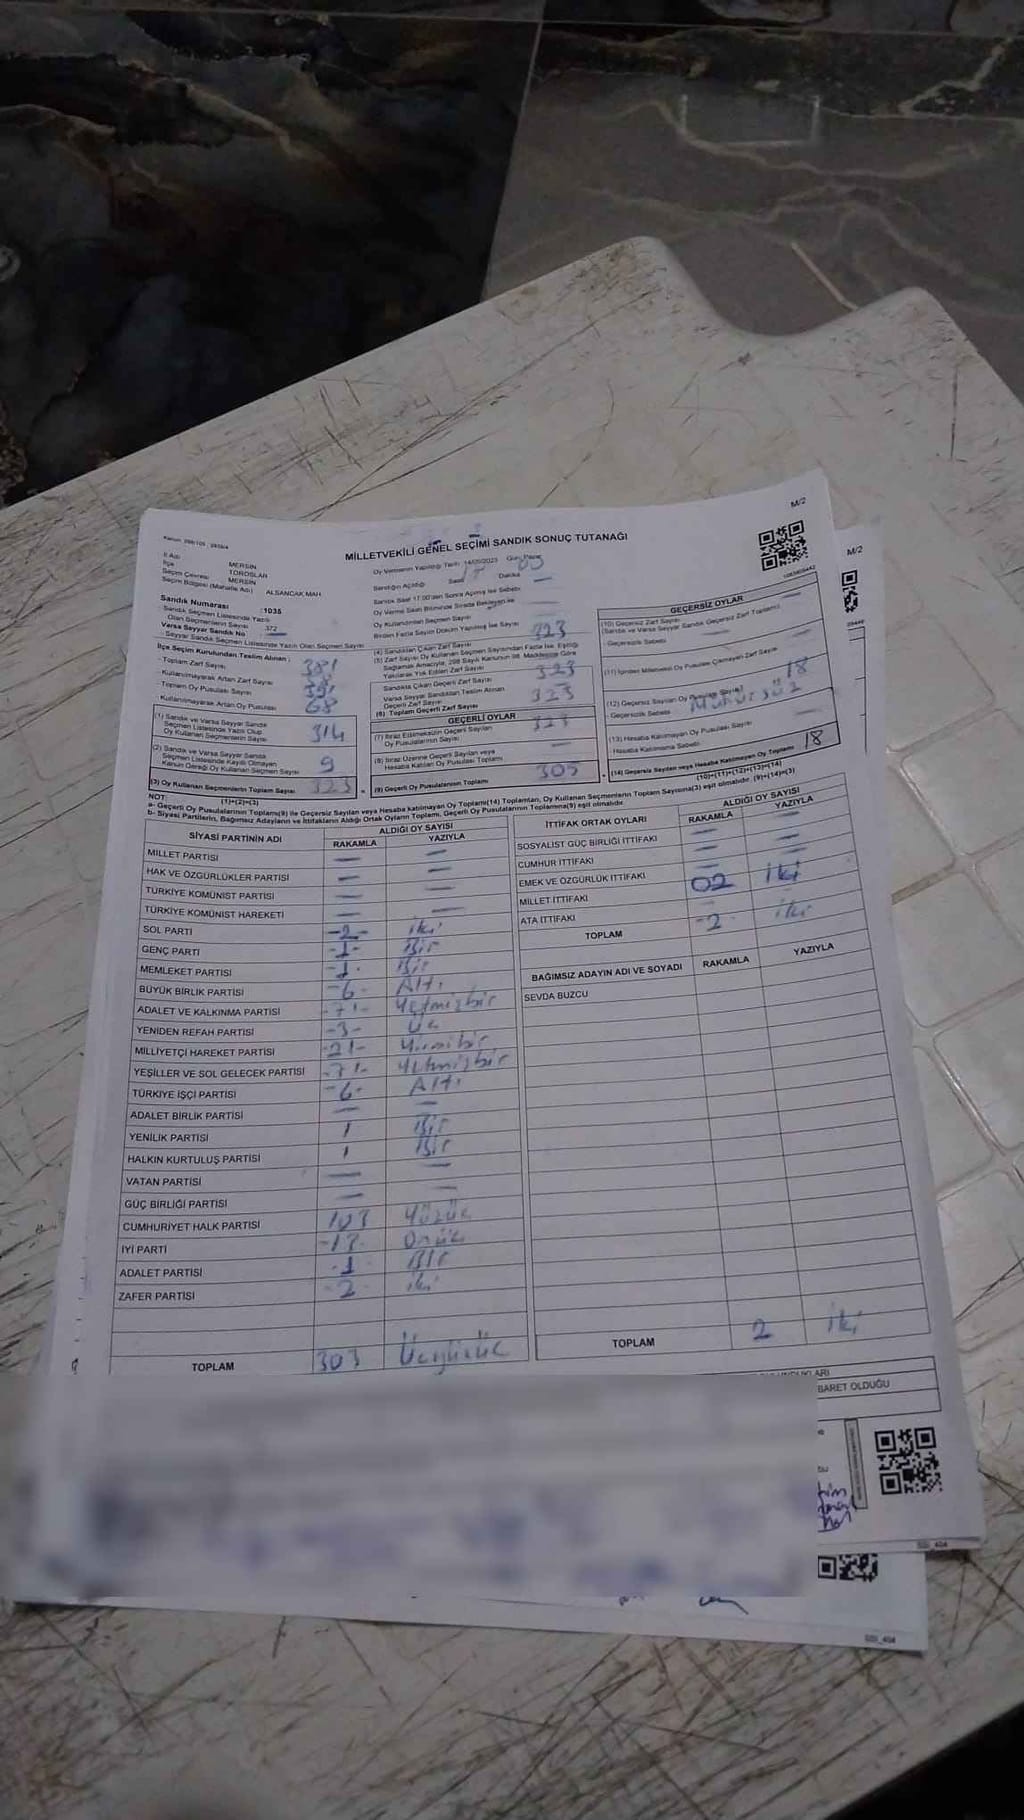 M/2
MİLLETVEKİLİ GENEL SEÇİMİ SANDIK SONUÇ TUTANAĞI
İl Adı MERSİN
İlçe TOROSLAR
Seçim Çevresi MERSİN
Seçim Bölgesi (Mahalle Adı) ALSANCAK MAH
Sandık Numarası :1035
Sandık Seçmen Listesinde Yazılı
Olan Seçmenlerin Sayısı 372
Varsa Seyyar Sandık No
Seyyar Sandık Seçmen Listesinde Yazılı Olan Seçmen Sayısı
Oy Vermenin Yapıldığı Tarih 14/05/2023 Gün Pazar
Sandığın Açıldığı Saat 17 Dakika
Oy Kullandırılan Seçmen Sayısı
Birden Fazla Sayım Döküm Yapılmış İse Sayısı
İlçe Seçim Kurulundan Teslim Alınan :
- Toplam Zarf Sayısı
- Kullanılmayarak Artan Zarf Sayısı
- Toplam Oy Pusulası Sayısı
- Kullanılmayarak Artan Oy Pusulası 68
(1) Sandık ve Varsa Seyyar Sandık
Seçmen Listesinde Yazılı Olup
Oy Kullanan Seçmenlerin Sayısı 314
(2) Sandık ve Varsa Seyyar Sandık
Seçmen Listesinde Kayıtlı Olmayan
Kanun Gereği Oy Kullanan Seçmen Sayısı 9
(3) Oy Kullanan Seçmenlerin Toplam Sayısı 323
(1)+(2)=(3)
(4) Sandıktan Çıkan Zarf Sayısı 323
(5) Zarf Sayısı Oy Kullanan Seçmen Sayısından Fazla İse, Eşitliği
Sağlamak Amacıyla, 298 Sayılı Kanunun 98. Maddesine Göre
Yakılarak Yok Edilen Zarf Sayısı
Sandıkta Çıkan Geçerli Zarf Sayısı 323
Varsa Seyyar Sandıktan Teslim Alınan
Geçerli Zarf Sayısı
(6) Toplam Geçerli Zarf Sayısı 323
GEÇERLİ OYLAR
(7) İtiraz Edilmeksizin Geçerli Sayılan
Oy Pusulalarının Sayısı 323
(8) İtiraz Üzerine Geçerli Sayılan veya
Hesaba Katılan Oy Pusulası Toplamı
(9) Geçerli Oy Pusulalarının Toplamı 305
GEÇERSİZ OYLAR
(10) Geçersiz Zarf Sayısı
(Sandık ve Varsa Seyyar Sandık Geçersiz Zarf Toplamı)
- Geçersizlik Sebebi
(11) İçinden Milletvekili Oy Pusulası Çıkmayan Zarf Sayısı
(12) Geçersiz Sayılan Oy Pusulası Sayısı 18
- Geçersizlik Sebebi Mühürsüz
(13) Hesaba Katılmayan Oy Pusulası Sayısı
- Hesaba Katılmama Sebebi
(14) Geçersiz Sayılan veya Hesaba Katılmayan Oy Toplamı 18
(10)+(11)+(12)+(13)=(14)
NOT:
a- Geçerli Oy Pusulalarının Toplamı(9) ile Geçersiz Sayılan veya Hesaba katılmayan Oy Toplamı(14) Toplamları, Oy Kullanan Seçmenlerin Toplam Sayısına(3) eşit olmalıdır. (9)+(14)=(3)
b- Siyasi Partilerin, Bağımsız Adayların ve İttifakların Aldığı Ortak Oyların Toplamı, Geçerli Oy Pusulalarının Toplamına(9) eşit olmalıdır.
SİYASİ PARTİNİN ADI ALDIĞI OY SAYISI
RAKAMLA YAZIYLA
MİLLET PARTİSİ — —
HAK VE ÖZGÜRLÜKLER PARTİSİ — —
TÜRKİYE KOMÜNİST PARTİSİ — —
TÜRKİYE KOMÜNİST HAREKETİ — —
SOL PARTİ -2- iki
GENÇ PARTİ -1- Bir
MEMLEKET PARTİSİ -1- Bir
BÜYÜK BİRLİK PARTİSİ -6- Altı
ADALET VE KALKINMA PARTİSİ -71- Yetmişbir
YENİDEN REFAH PARTİSİ -3- Üç
MİLLİYETÇİ HAREKET PARTİSİ -21- Yirmibir
YEŞİLLER VE SOL GELECEK PARTİSİ -71- Yetmişbir
TÜRKİYE İŞÇİ PARTİSİ -6- Altı
ADALET BİRLİK PARTİSİ — —
YENİLİK PARTİSİ 1 Bir
HALKIN KURTULUŞ PARTİSİ 1 Bir
VATAN PARTİSİ — —
GÜÇ BİRLİĞİ PARTİSİ — —
CUMHURİYET HALK PARTİSİ 103 Yüzüç
İYİ PARTİ -13- Onüç
ADALET PARTİSİ -1 Bir
ZAFER PARTİSİ -2- iki
TOPLAM 303 Üçyüzüç
İTTİFAK ORTAK OYLARI ALDIĞI OY SAYISI
RAKAMLA YAZIYLA
SOSYALİST GÜÇ BİRLİĞİ İTTİFAKI — —
CUMHUR İTTİFAKI — —
EMEK VE ÖZGÜRLÜK İTTİFAKI — —
MİLLET İTTİFAKI 02 iki
ATA İTTİFAKI
TOPLAM -2- iki
BAĞIMSIZ ADAYIN ADI VE SOYADI RAKAMLA YAZIYLA
SEVDA BUZCU
TOPLAM 2 iki
BARET OLDUĞU
M/2